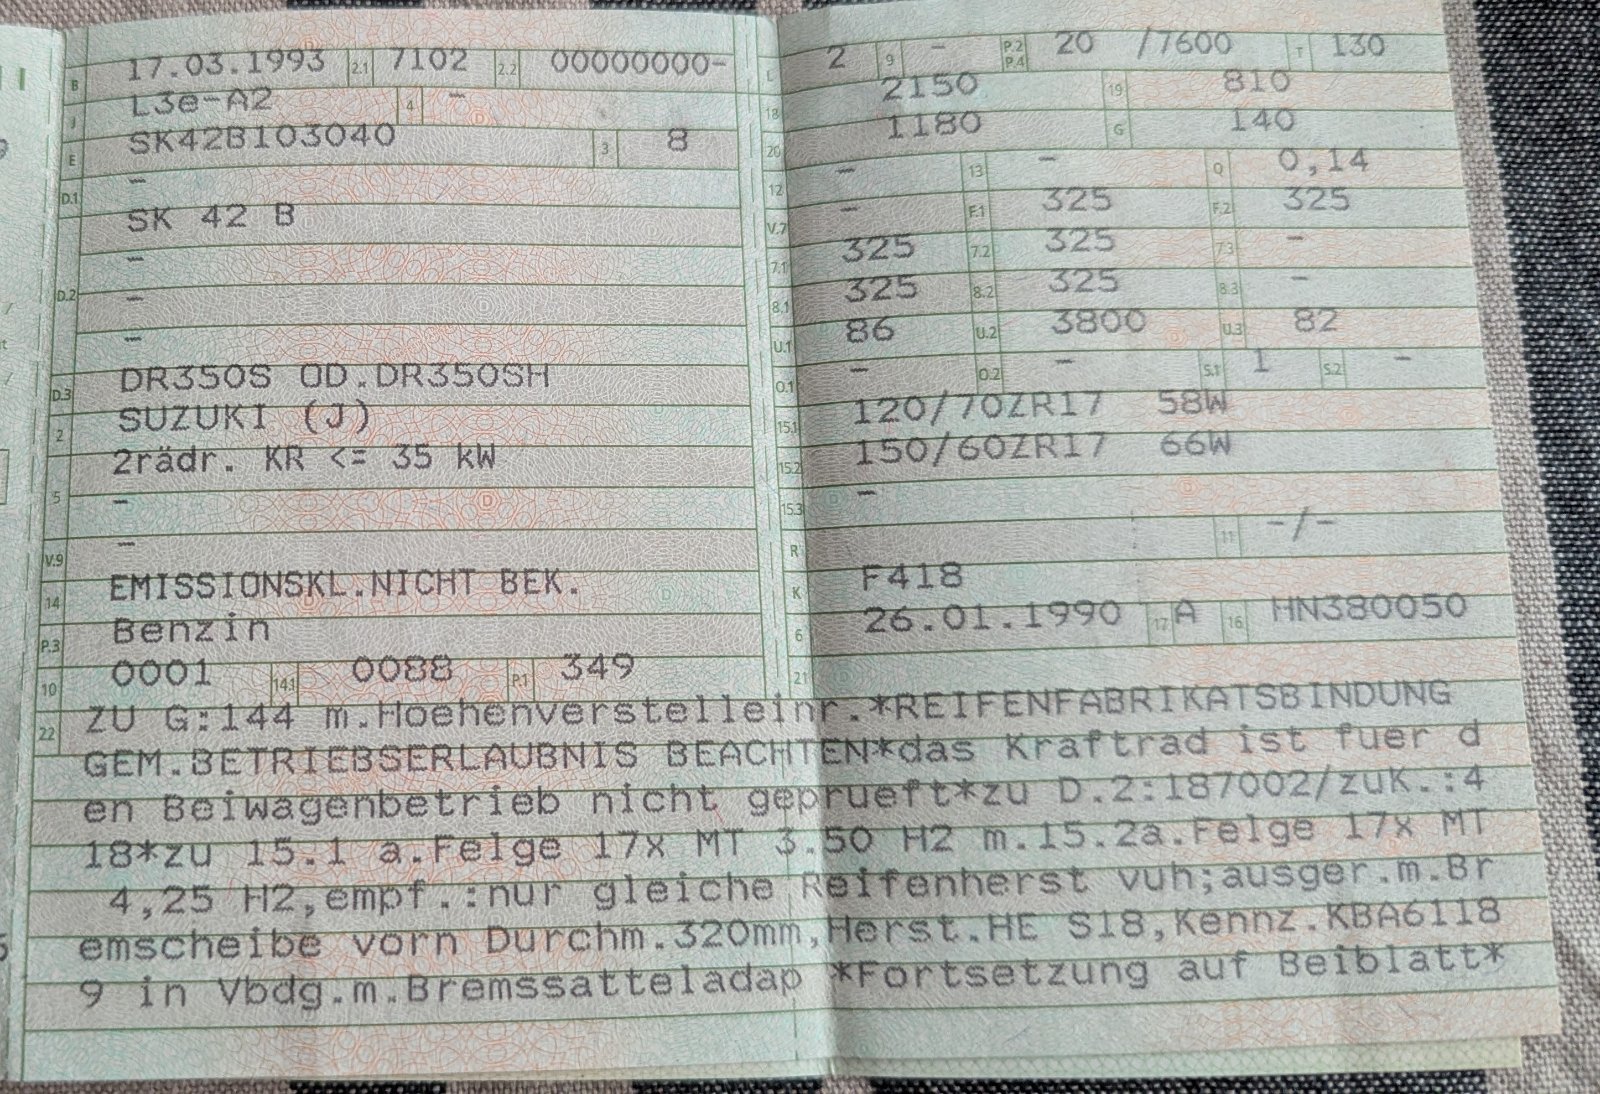 B 17.03.1993 2.1 7102 2.2 00000000-
J L3e-A2 4 -
E SK42B103040 3 8
D.1 -
SK 42 B
-
D.2 -
-
D.3 DR350S OD.DR350SH
2 SUZUKI (J)
5 2rädr. KR <= 35 kW
-
V.9 -
14 EMISSIONSKL.NICHT BEK.
P.3 Benzin
10 0001 14.1 0088 P.1 349
L 2 9 - P.2 P.4 20 /7600 T 130
18 2150 19 810
20 1180 G 140
12 - 13 - Q 0,14
V.7 - F.1 325 F.2 325
7.1 325 7.2 325 7.3 -
8.1 325 8.2 325 8.3 -
U.1 86 U.2 3800 U.3 82
O.1 - O.2 - S.1 1 S.2 -
15.1 120/70ZR17 58W
15.2 150/60ZR17 66W
15.3 -
R 11 -/-
K F418
6 26.01.1990 17 A 16 HN380050
21
22 ZU G:144 m.Hoehenverstelleinr.*REIFENFABRIKATSBINDUNG
GEM.BETRIEBSERLAUBNIS BEACHTEN*das Kraftrad ist fuer d
en Beiwagenbetrieb nicht geprueft*zu D.2:187002/zuK.:4
18*zu 15.1 a.Felge 17x MT 3.50 H2 m.15.2a.Felge 17x MT
4,25 H2,empf.:nur gleiche Reifenherst vuh;ausger.m.Br
emscheibe vorn Durchm.320mm,Herst.HE S18,Kennz.KBA6118
9 in Vbdg.m.Bremssatteladap *Fortsetzung auf Beiblatt*